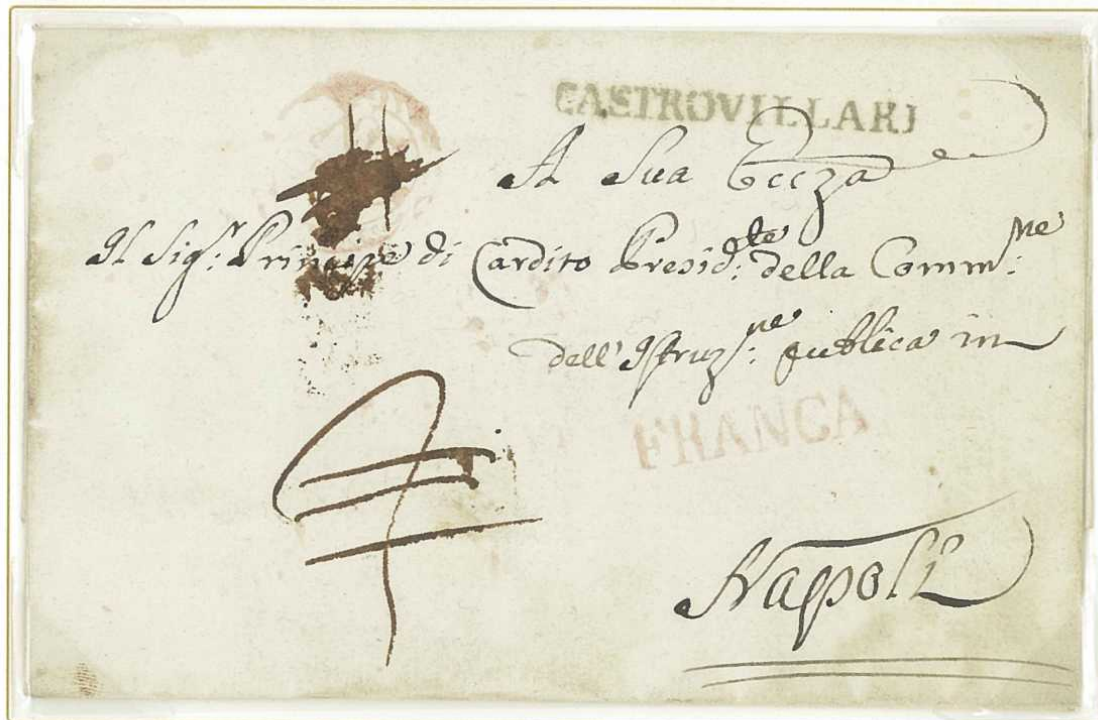 CASTROVILLARI
A Sua Ecc͞za
Il Sig:r Principe di Cardito Presid:te della Comm:ne
dell'Istruz:ne publica in
FRANCA
Napoli